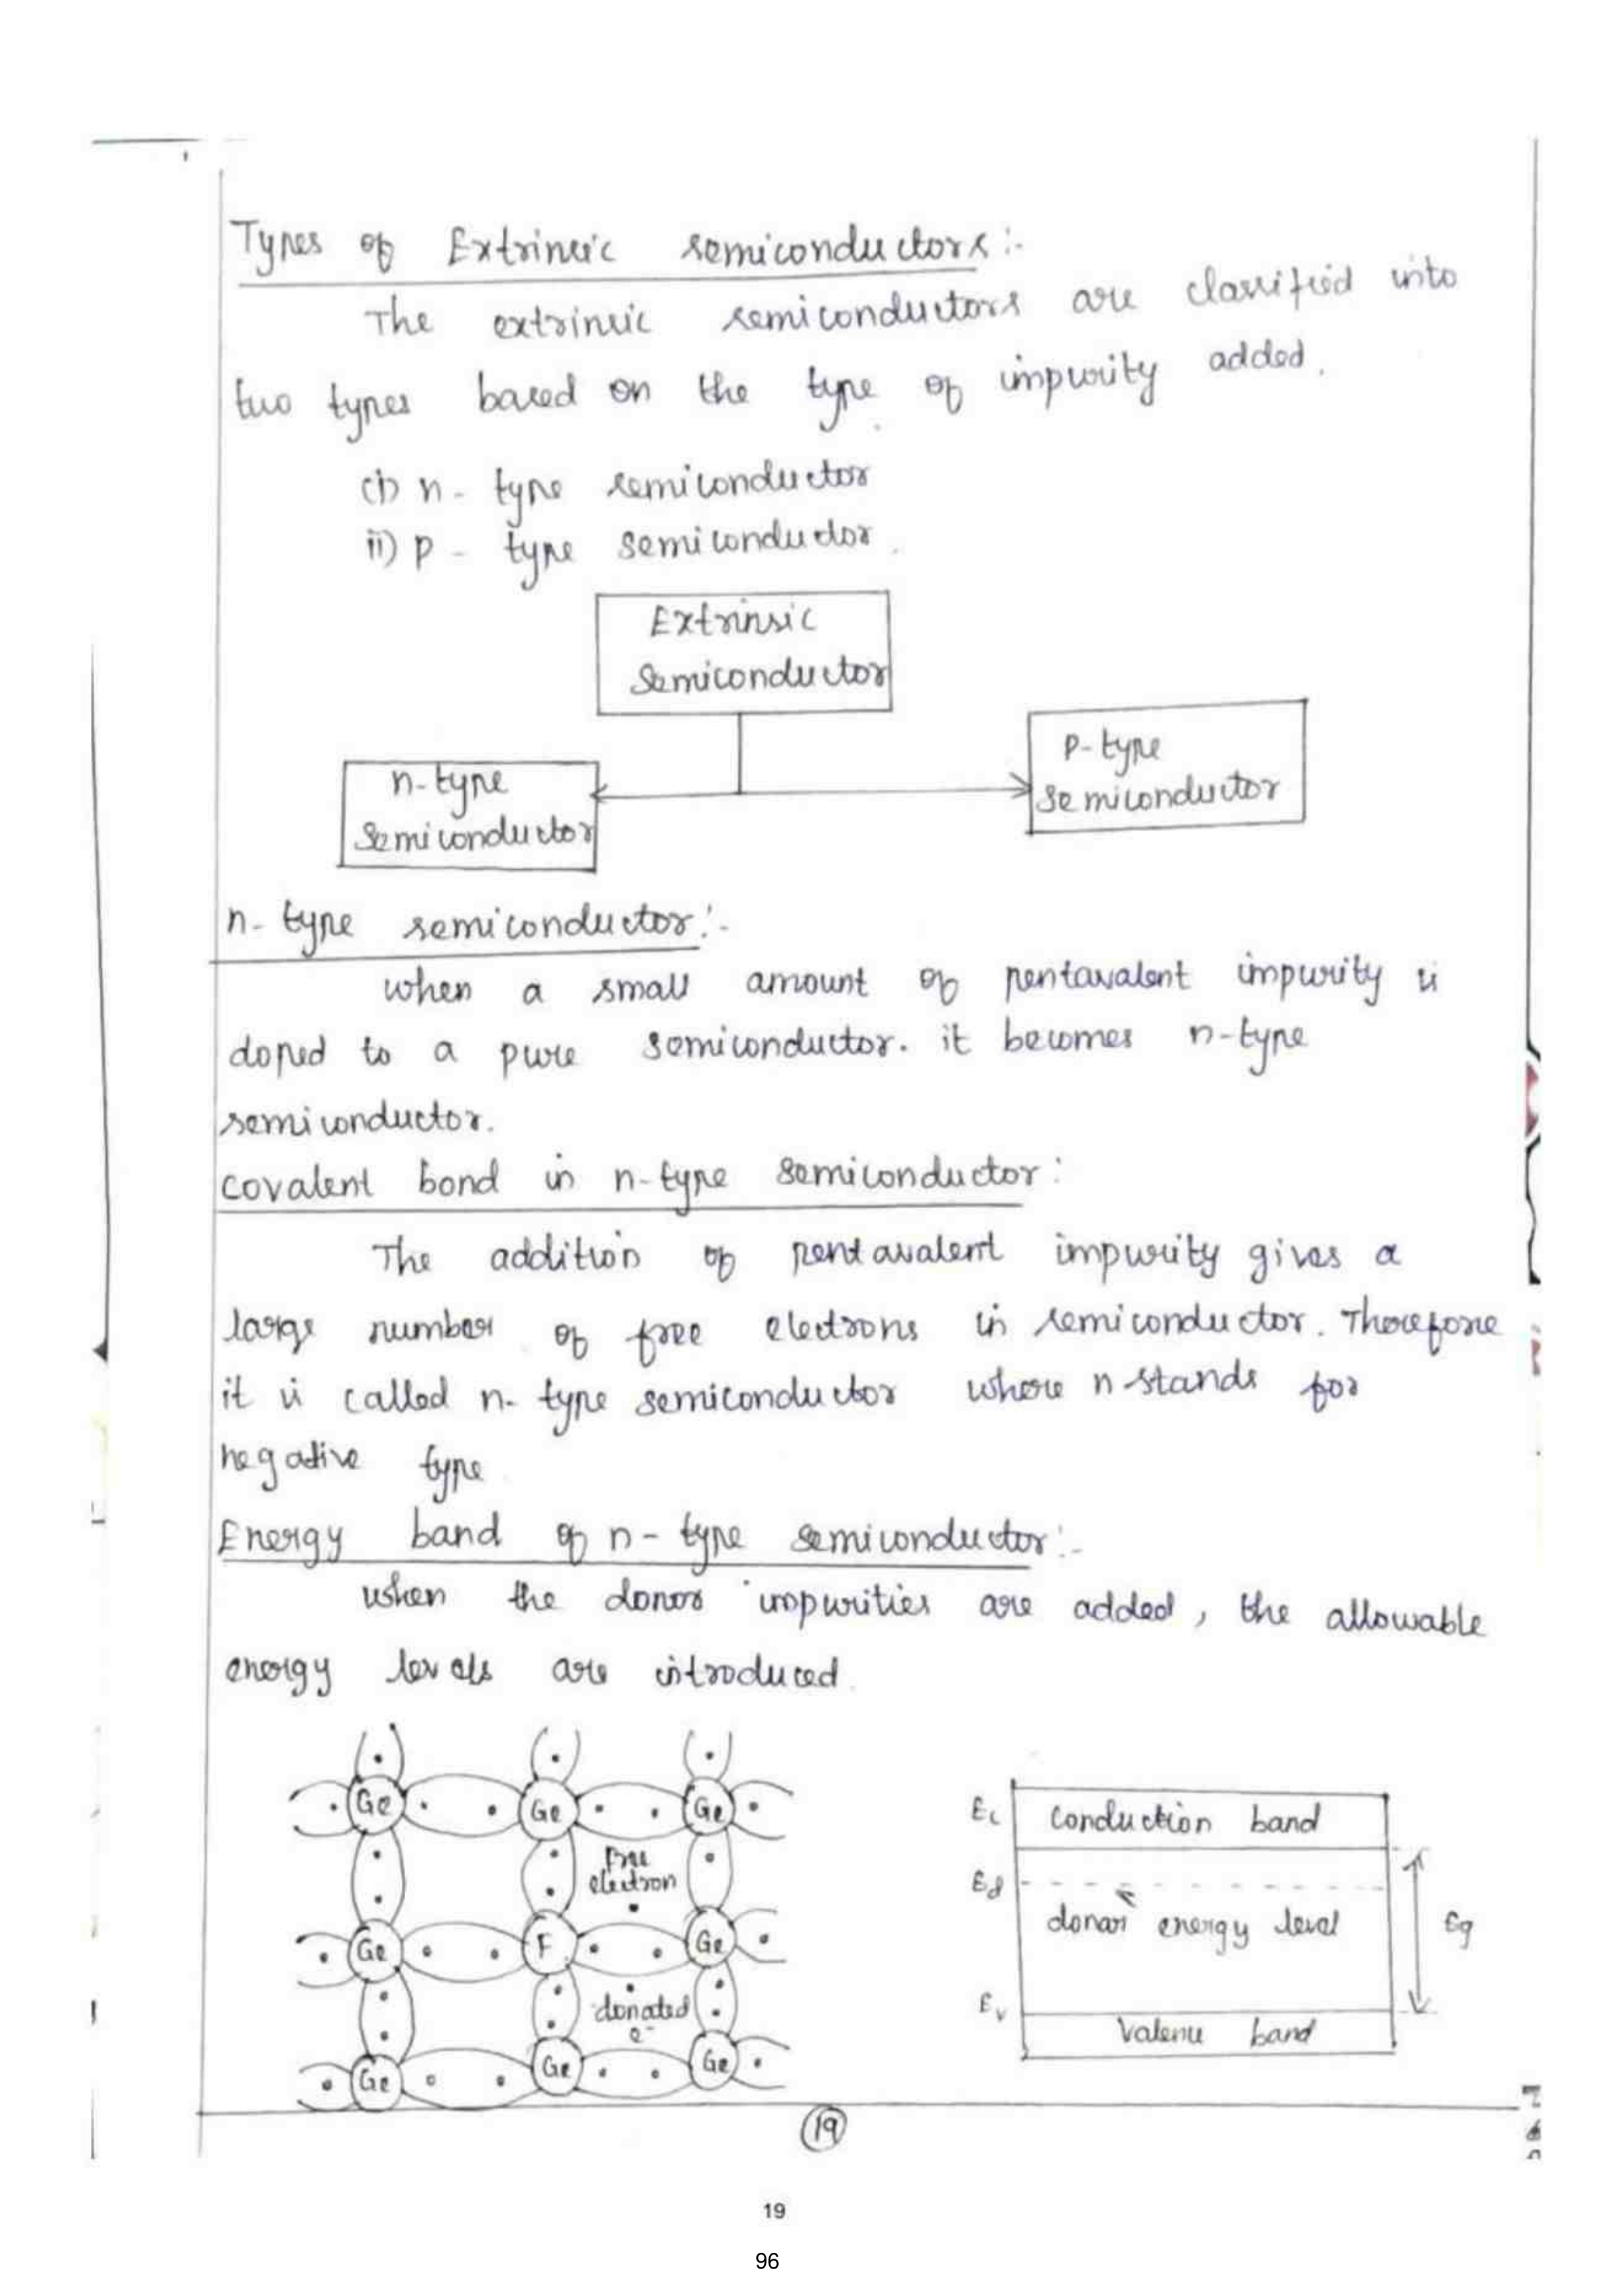 Types of Extrinsic semiconductors:-
The extrinsic semiconductors are classified into
two types based on the type of impurity added.
(i) n - type semiconductor
ii) p - type semiconductor.
Extrinsic
Semiconductor
n-type
Semiconductor
P-type
Semiconductor
n- type semiconductor:-
when a small amount of pentavalent impurity is
doped to a pure semiconductor. it becomes n-type
semiconductor.
covalent bond in n-type semiconductor:
The addition of pentavalent impurity gives a
large number of free electrons in semiconductor. Therefore
it is called n- type semiconductor where n stands for
negative type
Energy band of n- type semiconductor:-
when the donor impurities are added, the allowable
energy levels are introduced.
Ge Ge Ge
Free
electron
Ge F Ge
donated
e-
Ge Ge Ge
Ec conduction band
Ed
donar energy level
Eg
Ev
Valence band
19
19
96